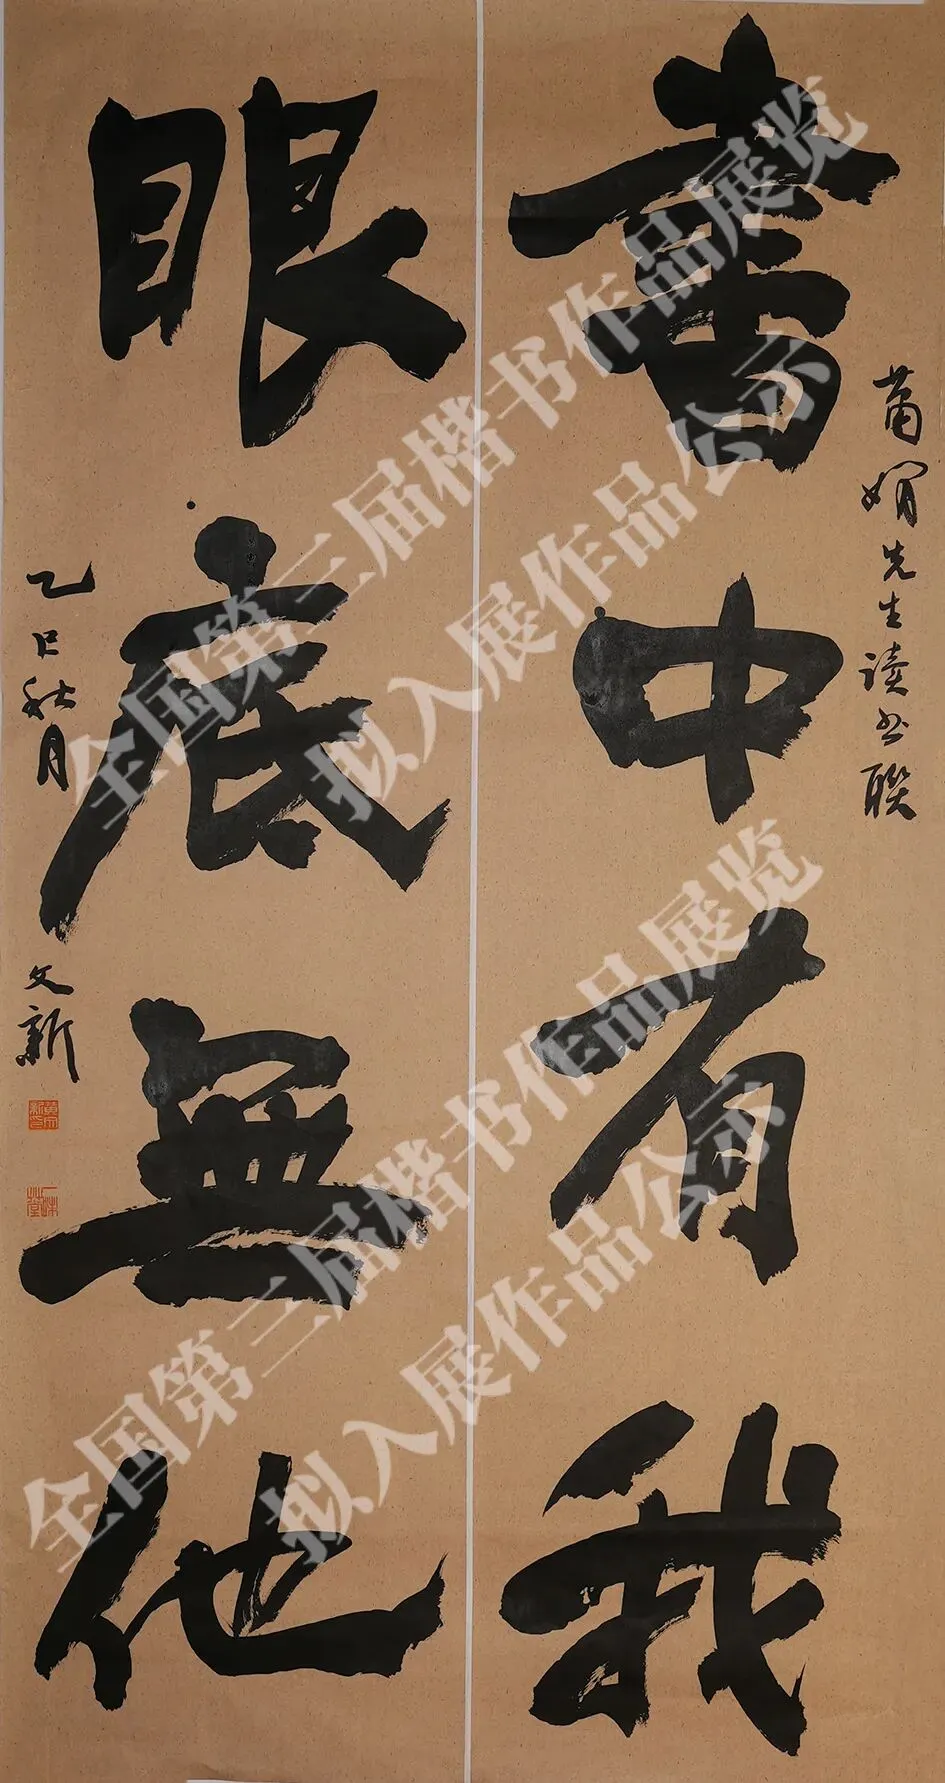 萧娴先生读书联
書中有我
眼底無他
乙巳秋月 文新
全国第三届楷书作品展览
拟入展作品公示
全国第三届楷书作品展览
拟入展作品公示